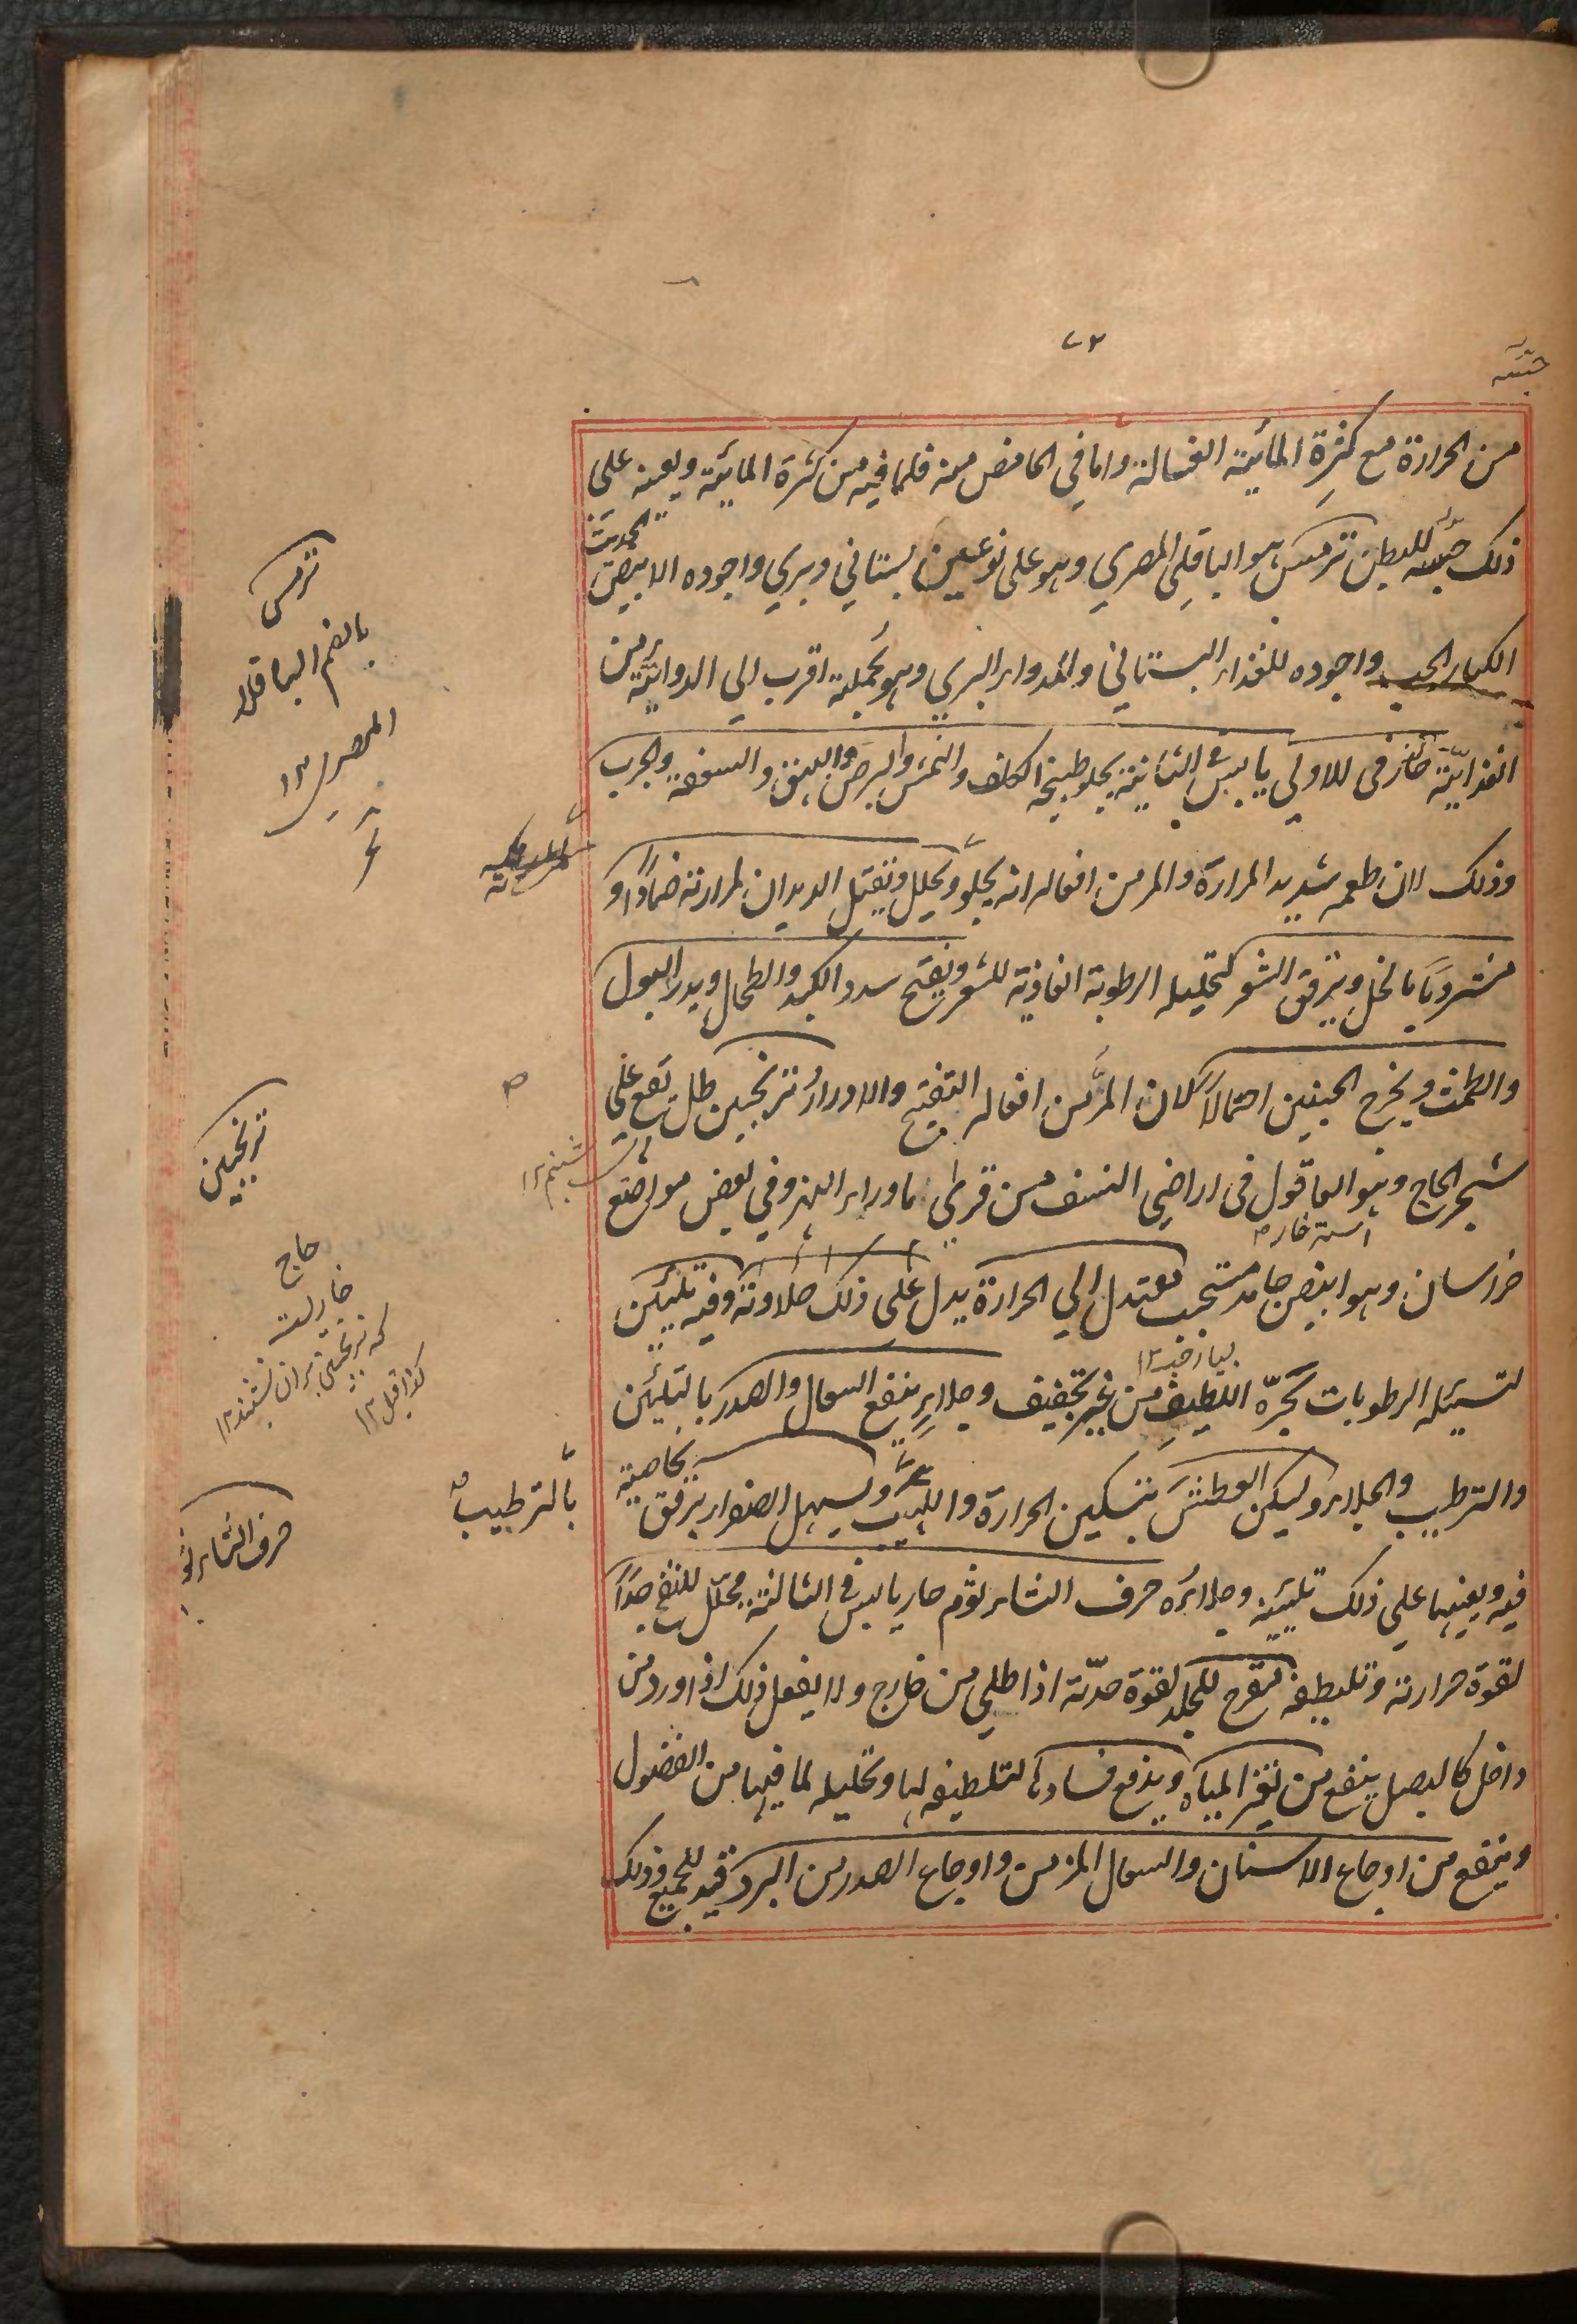 ٧٢
من الحرارة مع كثرة المائية الغسالة واما في الحامض منه فلما فيه من كثرة المائية ويعينه على
ذلك حبسه للبطن ترمس هو الباقلي المصري وهو على نوعين بستاني وبري واجوده الابيض الحديث
الكبار الحب واجوده للغذاء البستاني وللدواء البري وهو بجملته اقرب الي الدوائية من
الغذائية حار في الاولي يابس في الثانية يجلو طبيخه الكلف والنمش والبرص والبهق والسعفة والجرب
وذلك لان طعمه شديد المرارة والمر من افعاله انه يجلو ويحلل ويقتل الديدان لمرارته ضمادا او
مشروبا بالخل ويرقق الشعر لتحليله الرطوبة الغاذية للشعر ويفتح سدد الكبد والطحال ويدر البول
والطمث ويخرج الجنين احتمالا لان المر من افعاله التفتيح والادرار ترنجبين طل يقع على
شجر الحاج وهو العاقول في اراضي النسف من قري ماوراء النهر وفي بعض مواضع
خراسان وهو ابيض جامد متحبب معتدل الي الحرارة يدل على ذلك حلاوته وفيه تليين
لتسييله الرطوبات بحره اللطيف من غير تجفيف وجلاء ينفع السعال والصدر بالتليين
والترطيب والجلاء ويسكن العطش بتسكين الحرارة واللهيب ويسهل الصفراء برفق بخاصية
فيه ويعينها علي ذلك تليينه وجلاؤه حرف الثاء ثوم حار يابس في الثالثة محلل للنفخ جدا
لقوة حرارته وتلطيفه مقرح للجلد لقوة حدته اذا طلي من خارج ولا يفعل ذلك اذا ورد من
داخل كالبصل ينفع من تغير المياه ويدفع فسادها لتلطيفه لها وتحليله لما فيها من الفضول
وينفع من اوجاع الاسنان والسعال المزمن واوجاع الصدر من البرد قيد للجميع وذلك
شبنم ١٢
ترمس
بالضم الباقلاء
المصري ١٢
ترنجبين
حاج
خاريست
كه ترنجبين بران نشيند ١٢
كذا قيل ١٢
بالترطيب
حرف الثاء